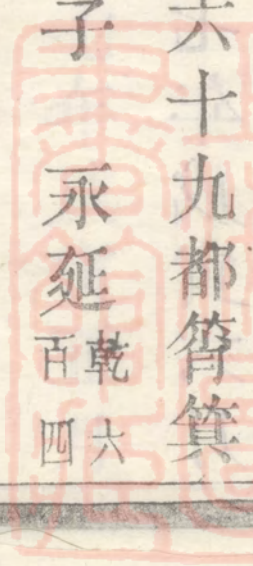 六十九都筲箕
子　永延乾六
百四